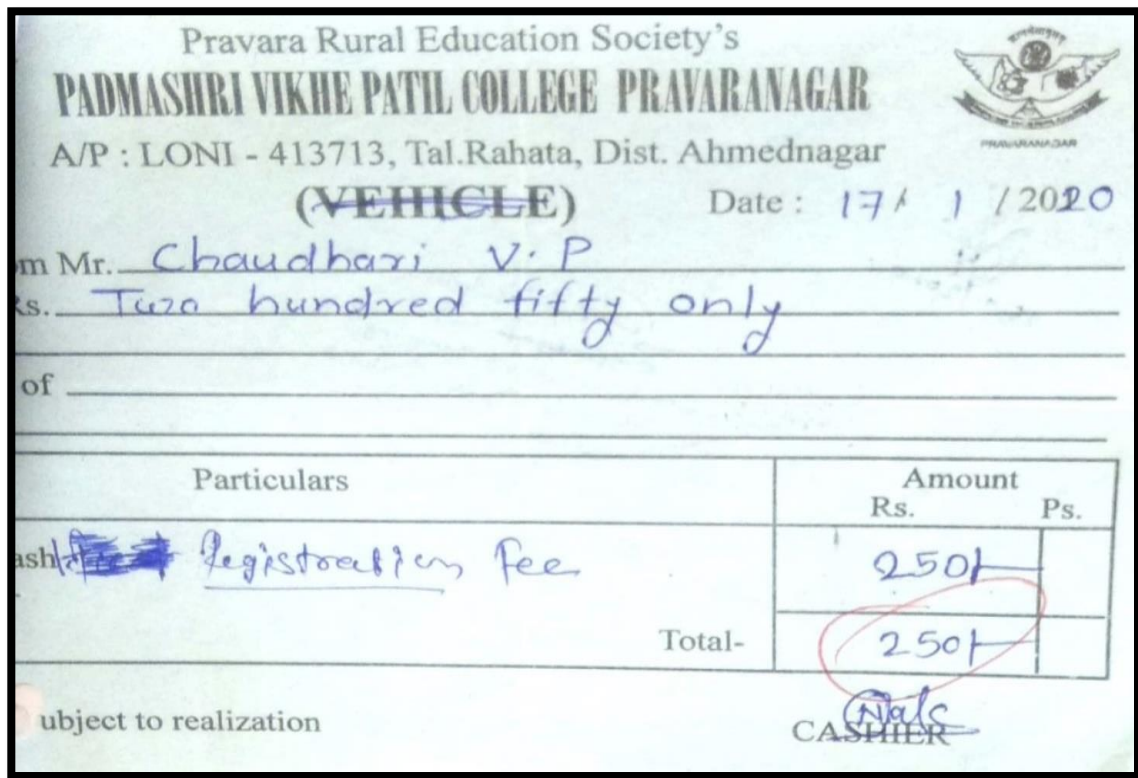 Pravara Rural Education Society's
PADMASHRI VIKHE PATIL COLLEGE PRAVARANAGAR
PRAVARANAGAR
A/P : LONI - 413713, Tal.Rahata, Dist. Ahmednagar
(VEHICLE) Date : 17/ 1 / 2020
m Mr. Chaudhari V.P
s. Two hundred fifty only
of
Particulars Amount
Rs. Ps.
ash Registration Fee 250/-
Total- 250/-
ubject to realization CASHIER